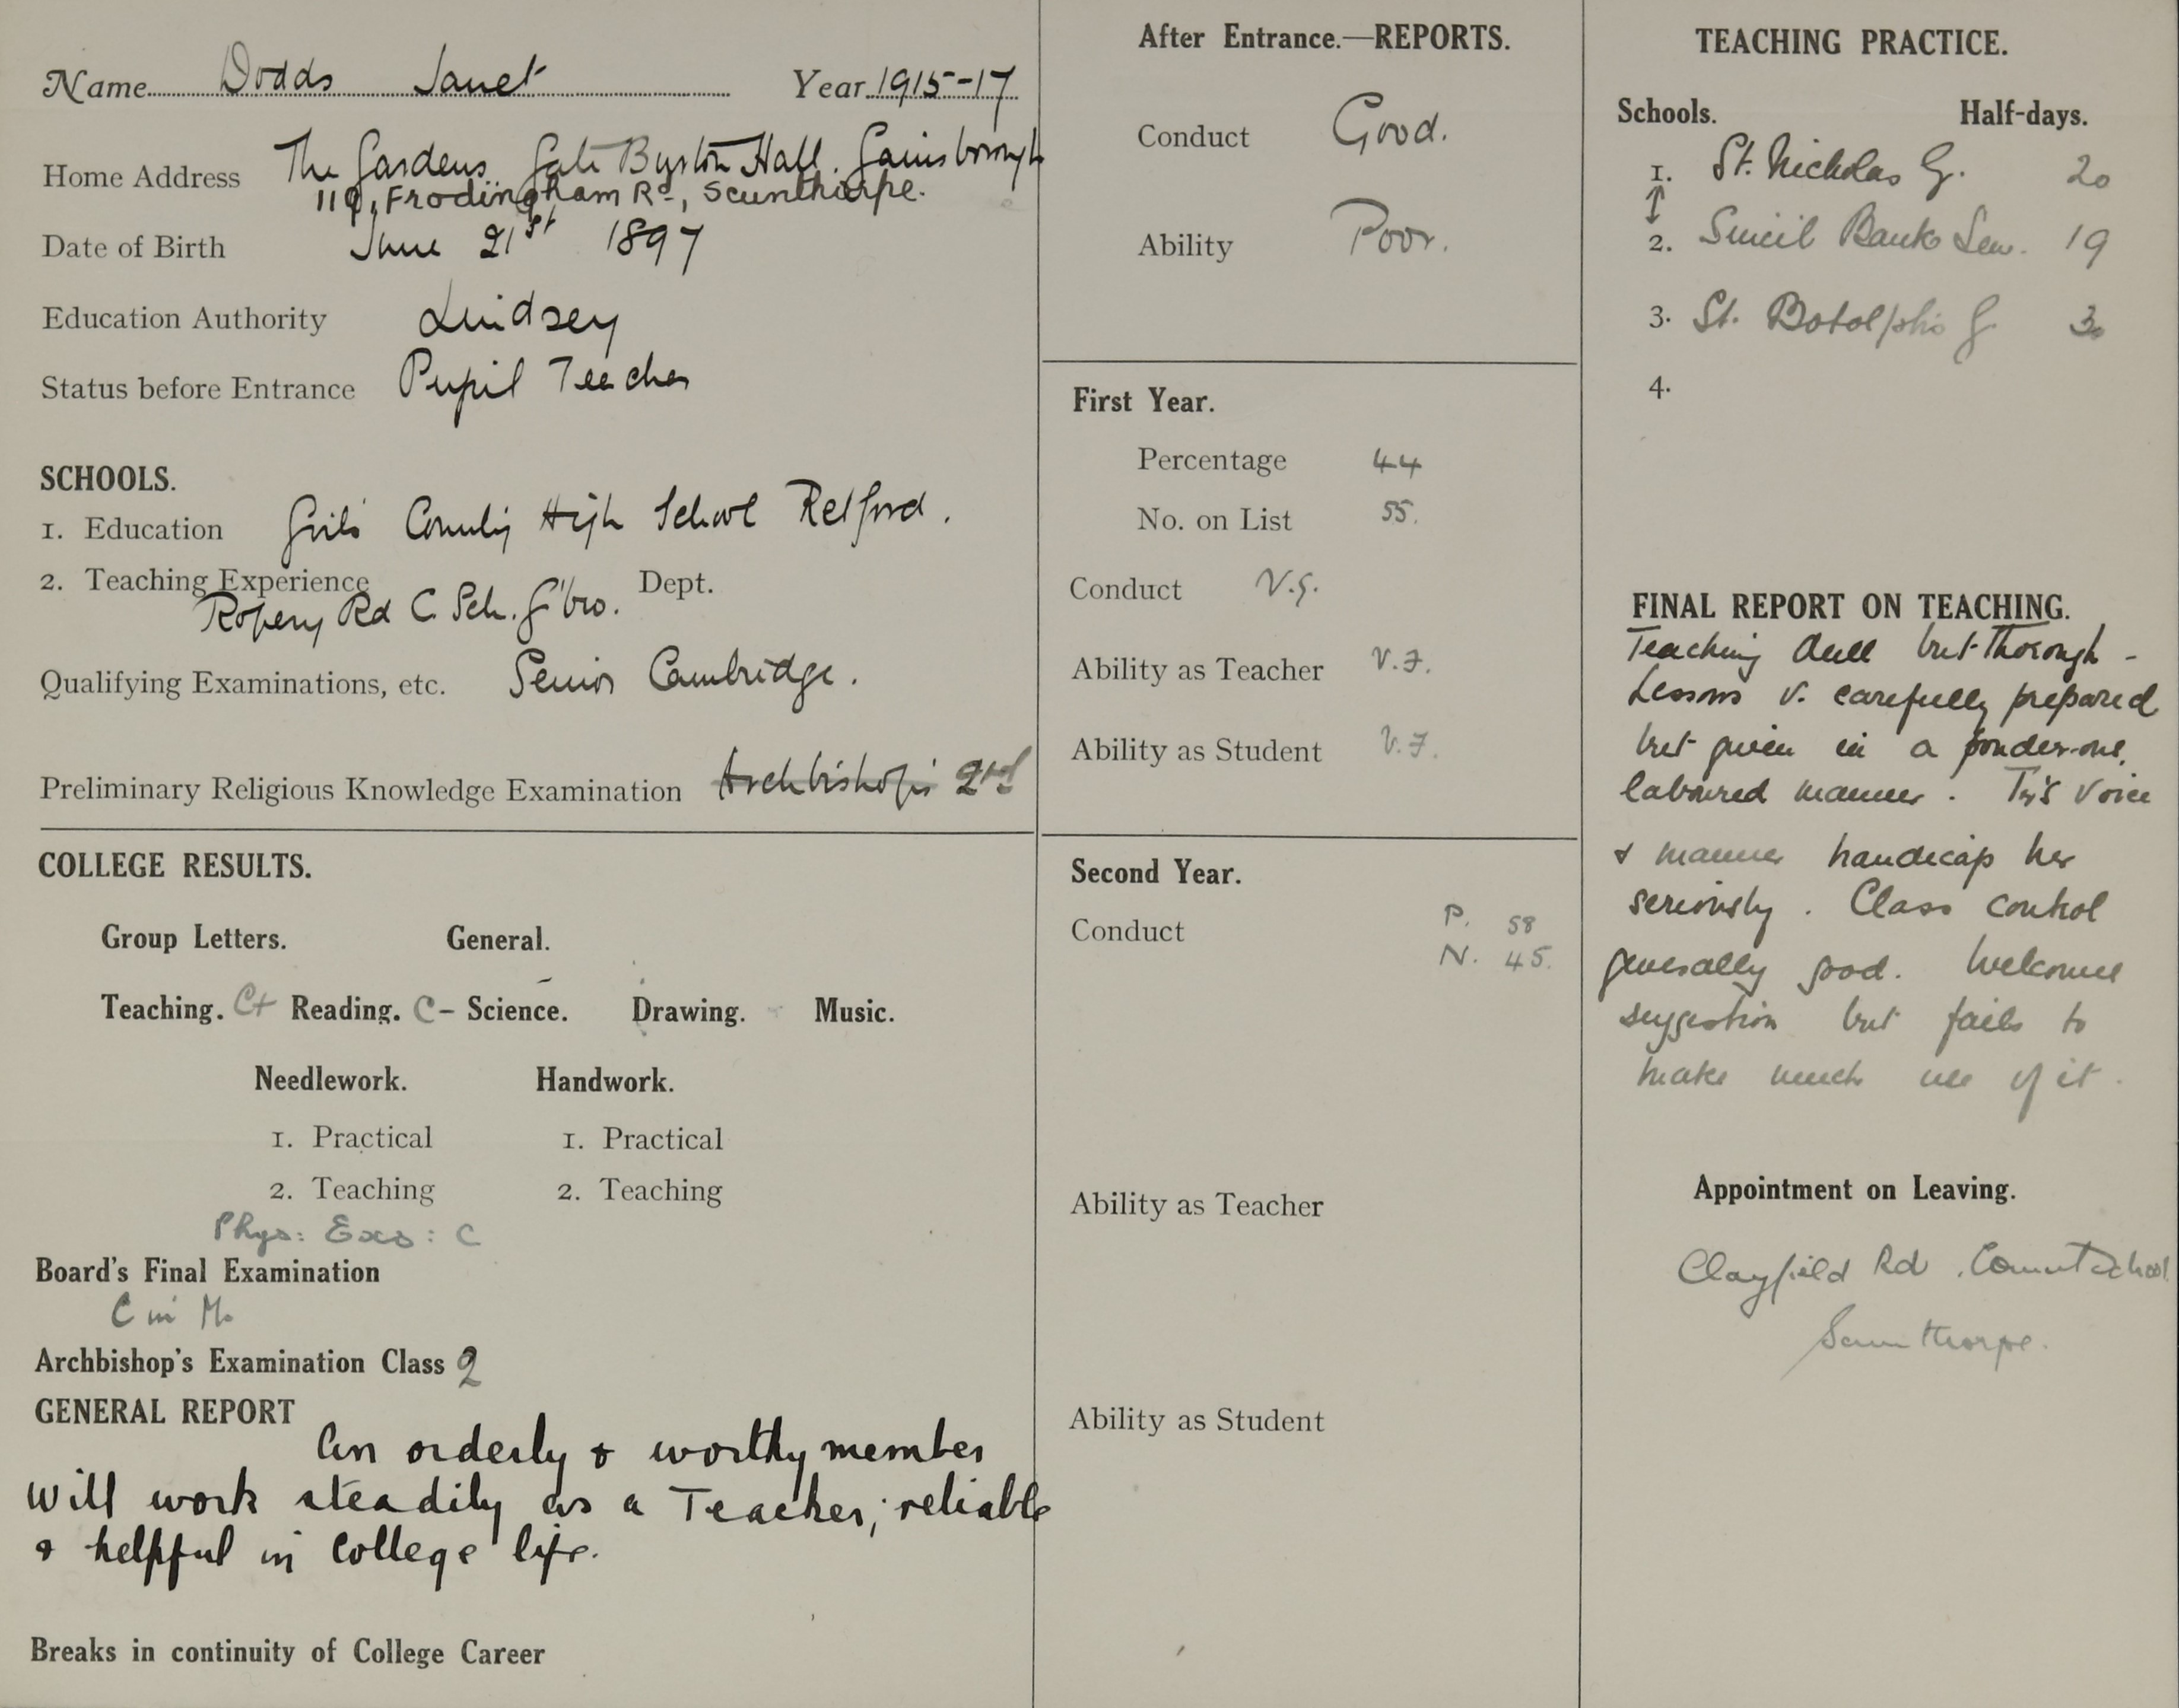 Name Dodds Janet Year 1915-17
Home Address The Gardens, Gate Burton Hall, Gainsborough
119, Frodingham Rd, Scunthorpe.
Date of Birth June 21st 1897
Education Authority Lindsey
Status before Entrance Pupil Teacher
SCHOOLS.
1. Education Girls' County High School Retford.
2. Teaching Experience Dept.
Ropery Rd C. Sch. G'bro.
Qualifying Examinations, etc. Senior Cambridge.
Preliminary Religious Knowledge Examination Archbishop's 2nd
COLLEGE RESULTS.
Group Letters. General.
Teaching. C+ Reading. C- Science. Drawing. Music.
Needlework. Handwork.
1. Practical 1. Practical
2. Teaching 2. Teaching
Phys: Exs: C
Board's Final Examination
C in M.
Archbishop's Examination Class 2
GENERAL REPORT
An orderly & worthy member
Will work steadily as a Teacher; reliable
& helpful in College life.
Breaks in continuity of College Career
After Entrance.—REPORTS.
Conduct Good.
Ability Poor.
First Year.
Percentage 44
No. on List 55.
Conduct V.G.
Ability as Teacher V.F.
Ability as Student V.F.
Second Year.
Conduct P. 58
N. 45.
Ability as Teacher
Ability as Student
TEACHING PRACTICE.
Schools. Half-days.
1. St. Nicholas G. 20
2. Sincil Bank Sen. 19
3. St. Botolph's G. 30
4.
FINAL REPORT ON TEACHING.
Teaching dull but thorough -
Lessons v. carefully prepared
but given in a ponderous,
laboured manner. Tr's voice
& manner handicap her
seriously. Class control
generally good. Welcomes
suggestion but fails to
make much use of it.
Appointment on Leaving.
Clayfield Rd. School
Scunthorpe.